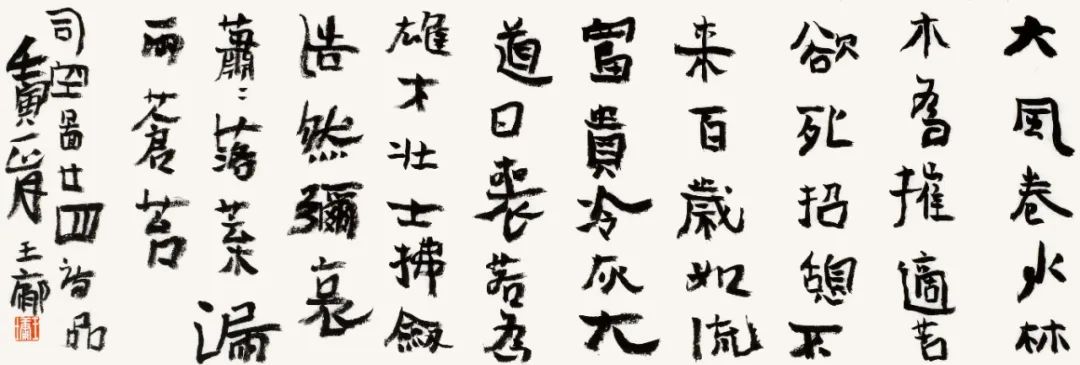 大風卷水林
木為摧適苦
欲死招憩不
来百歲如流
富貴冷灰大
道日喪若為
雄才壯士拂劔
浩然彌哀
蕭〻落葉漏
雨蒼苔
司空圖廿四詩品
壬寅正月 王